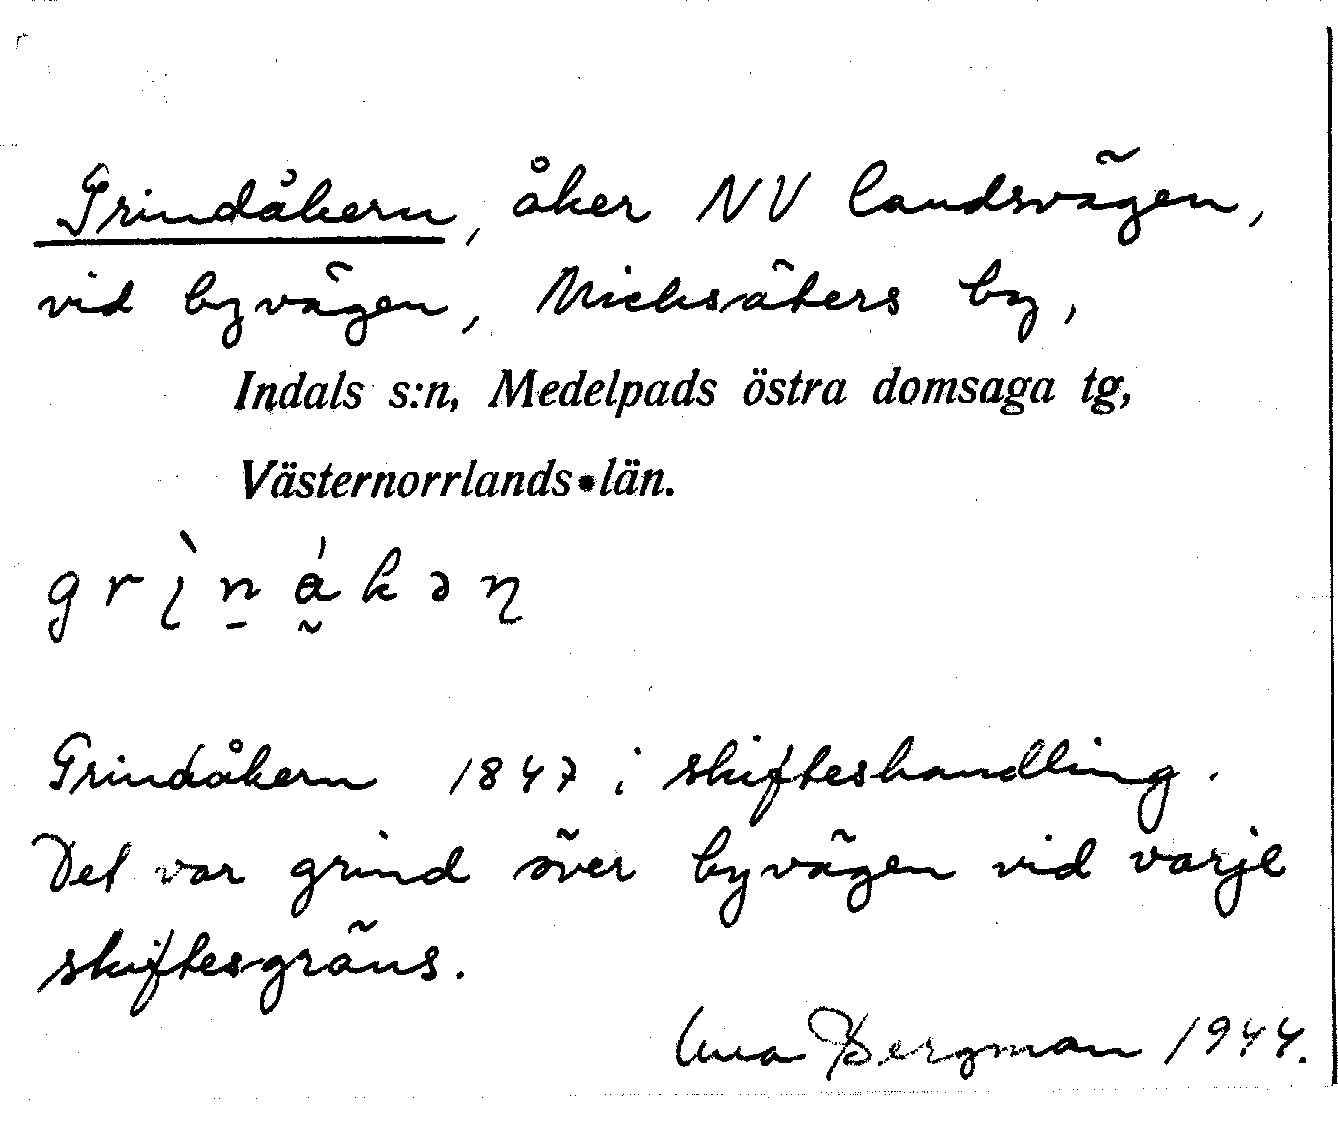 Grindåkern, åker NV landsvägen,
vid byvägen, Nicksäters by,
Indals s:n, Medelpads östra domsaga tg,
Västernorrlands län.
Grindåkern 1847 i skifteshandling.
Det var grind över byvägen vid varje
skiftesgräns.
Bergman 1944.